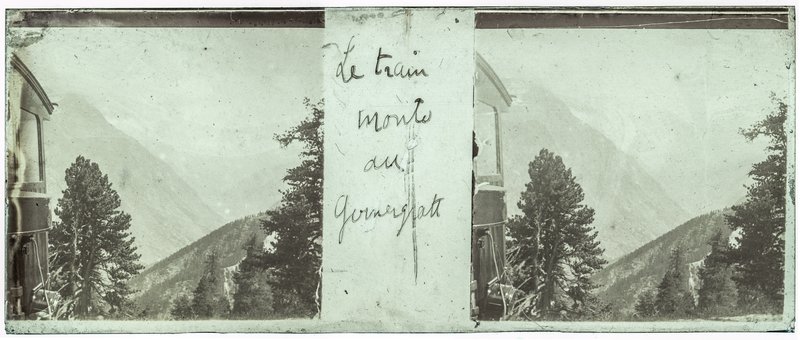 Le train
monte
au
Gornergratt